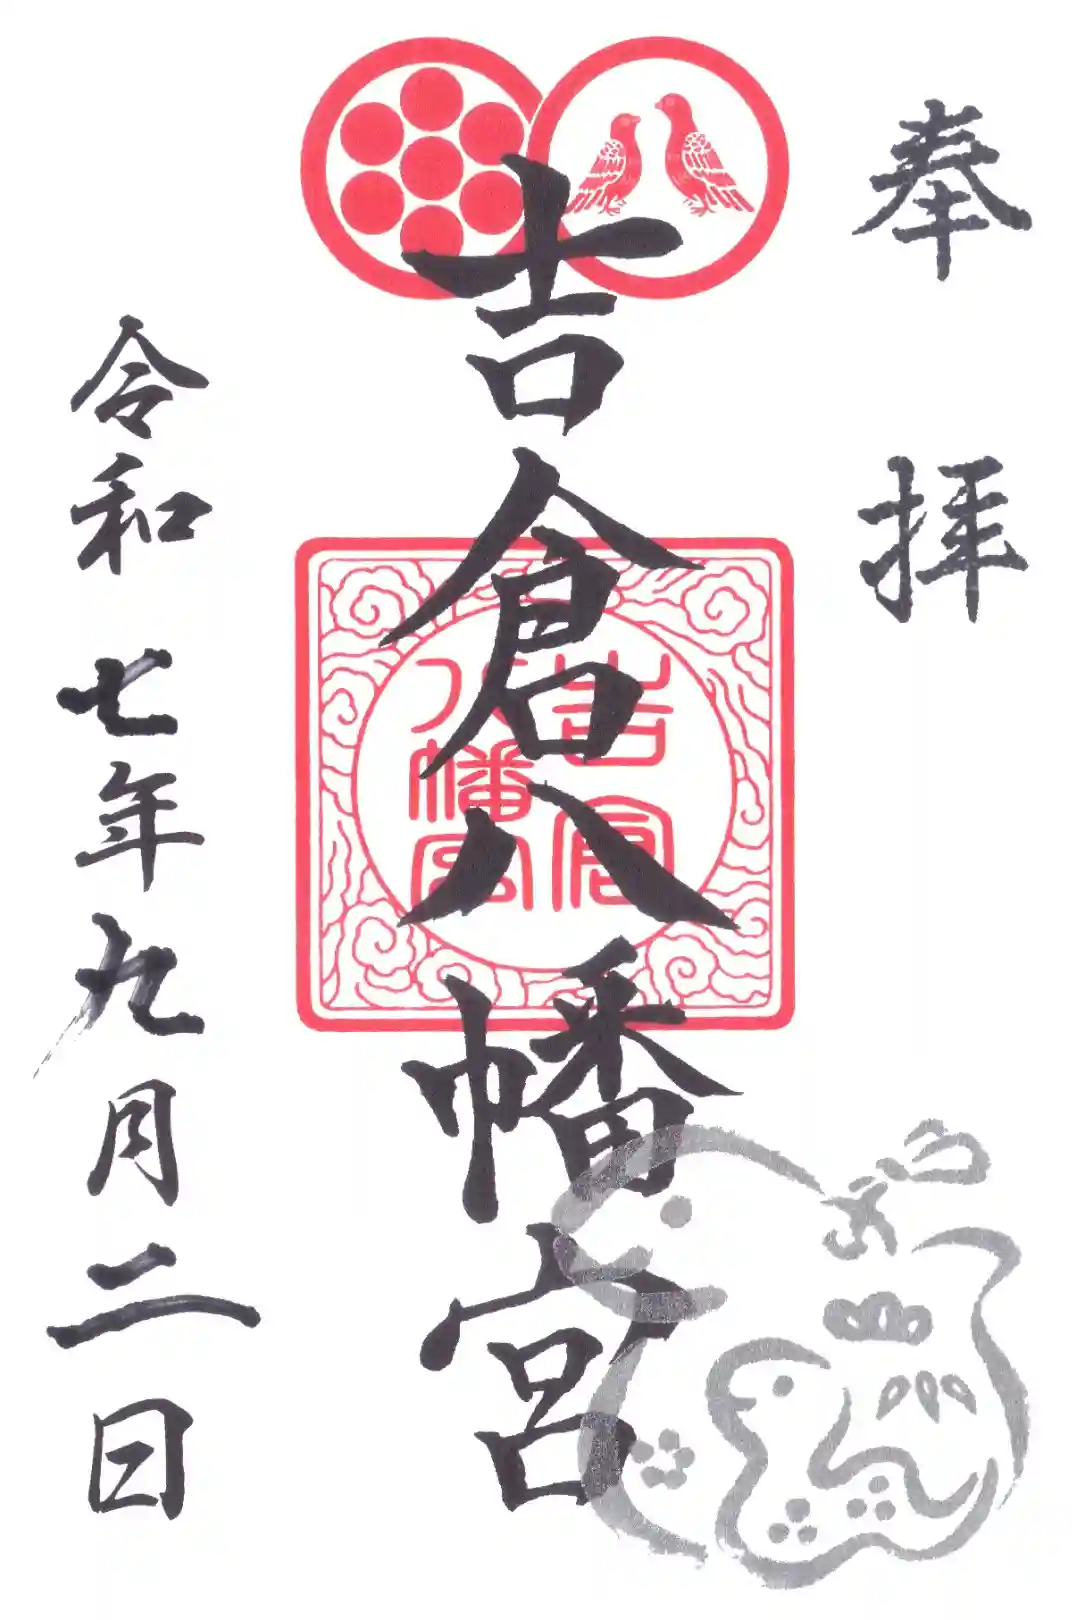 奉拝
吉倉八幡宮
吉倉
八幡宮
令和七年九月二日